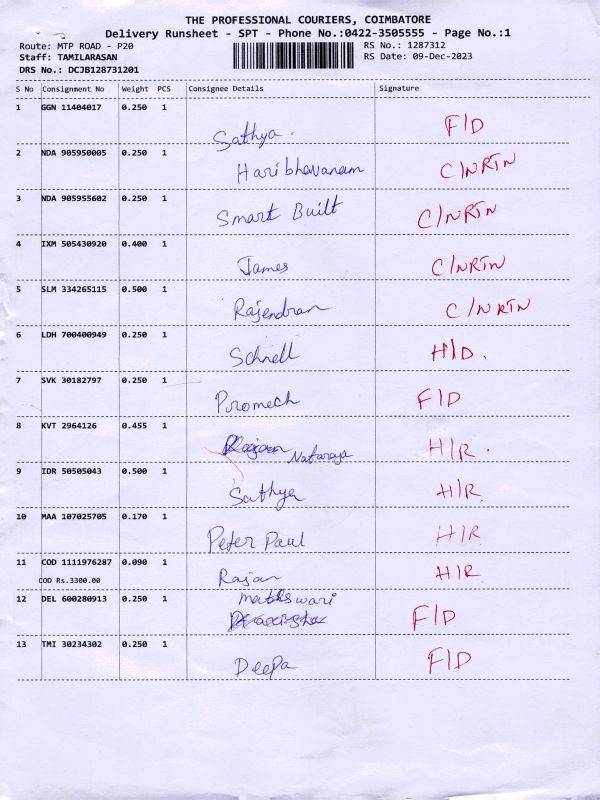 THE PROFESSIONAL COURIERS, COIMBATORE
Delivery Runsheet - SPT - Phone No.:0422-3505555 - Page No.:1
Route: MTP ROAD - P20 RS No.: 1287312
Staff: TAMILARASAN RS Date: 09-Dec-2023
DRS No.: DCJB128731201
S No Consignment No Weight PCS Consignee Details Signature
1 GGN 11404017 0.250 1
Sathya. F/D
2 NDA 905950005 0.250 1
Haribhavanam C/NRTN
3 NDA 905955602 0.250 1
Smart Built C/NRTN
4 IXM 505430920 0.400 1
James C/NRTN
5 SLM 334265115 0.500 1
Rajendran C/NRTN
6 LDH 700400949 0.250 1
Schnell H/D.
7 SVK 30182797 0.250 1
Promech F/D
8 KVT 2964126 0.455 1
Nataraja H/R.
9 IDR 50505043 0.500 1
Sathya H/R
10 MAA 107025705 0.170 1
Peter Paul H/R
11 COD 1111976287 0.090 1
COD Rs.3300.00 Rajan H/R
12 DEL 600280913 0.250 1
F/D
13 TMI 30234302 0.250 1
Deepa F/D